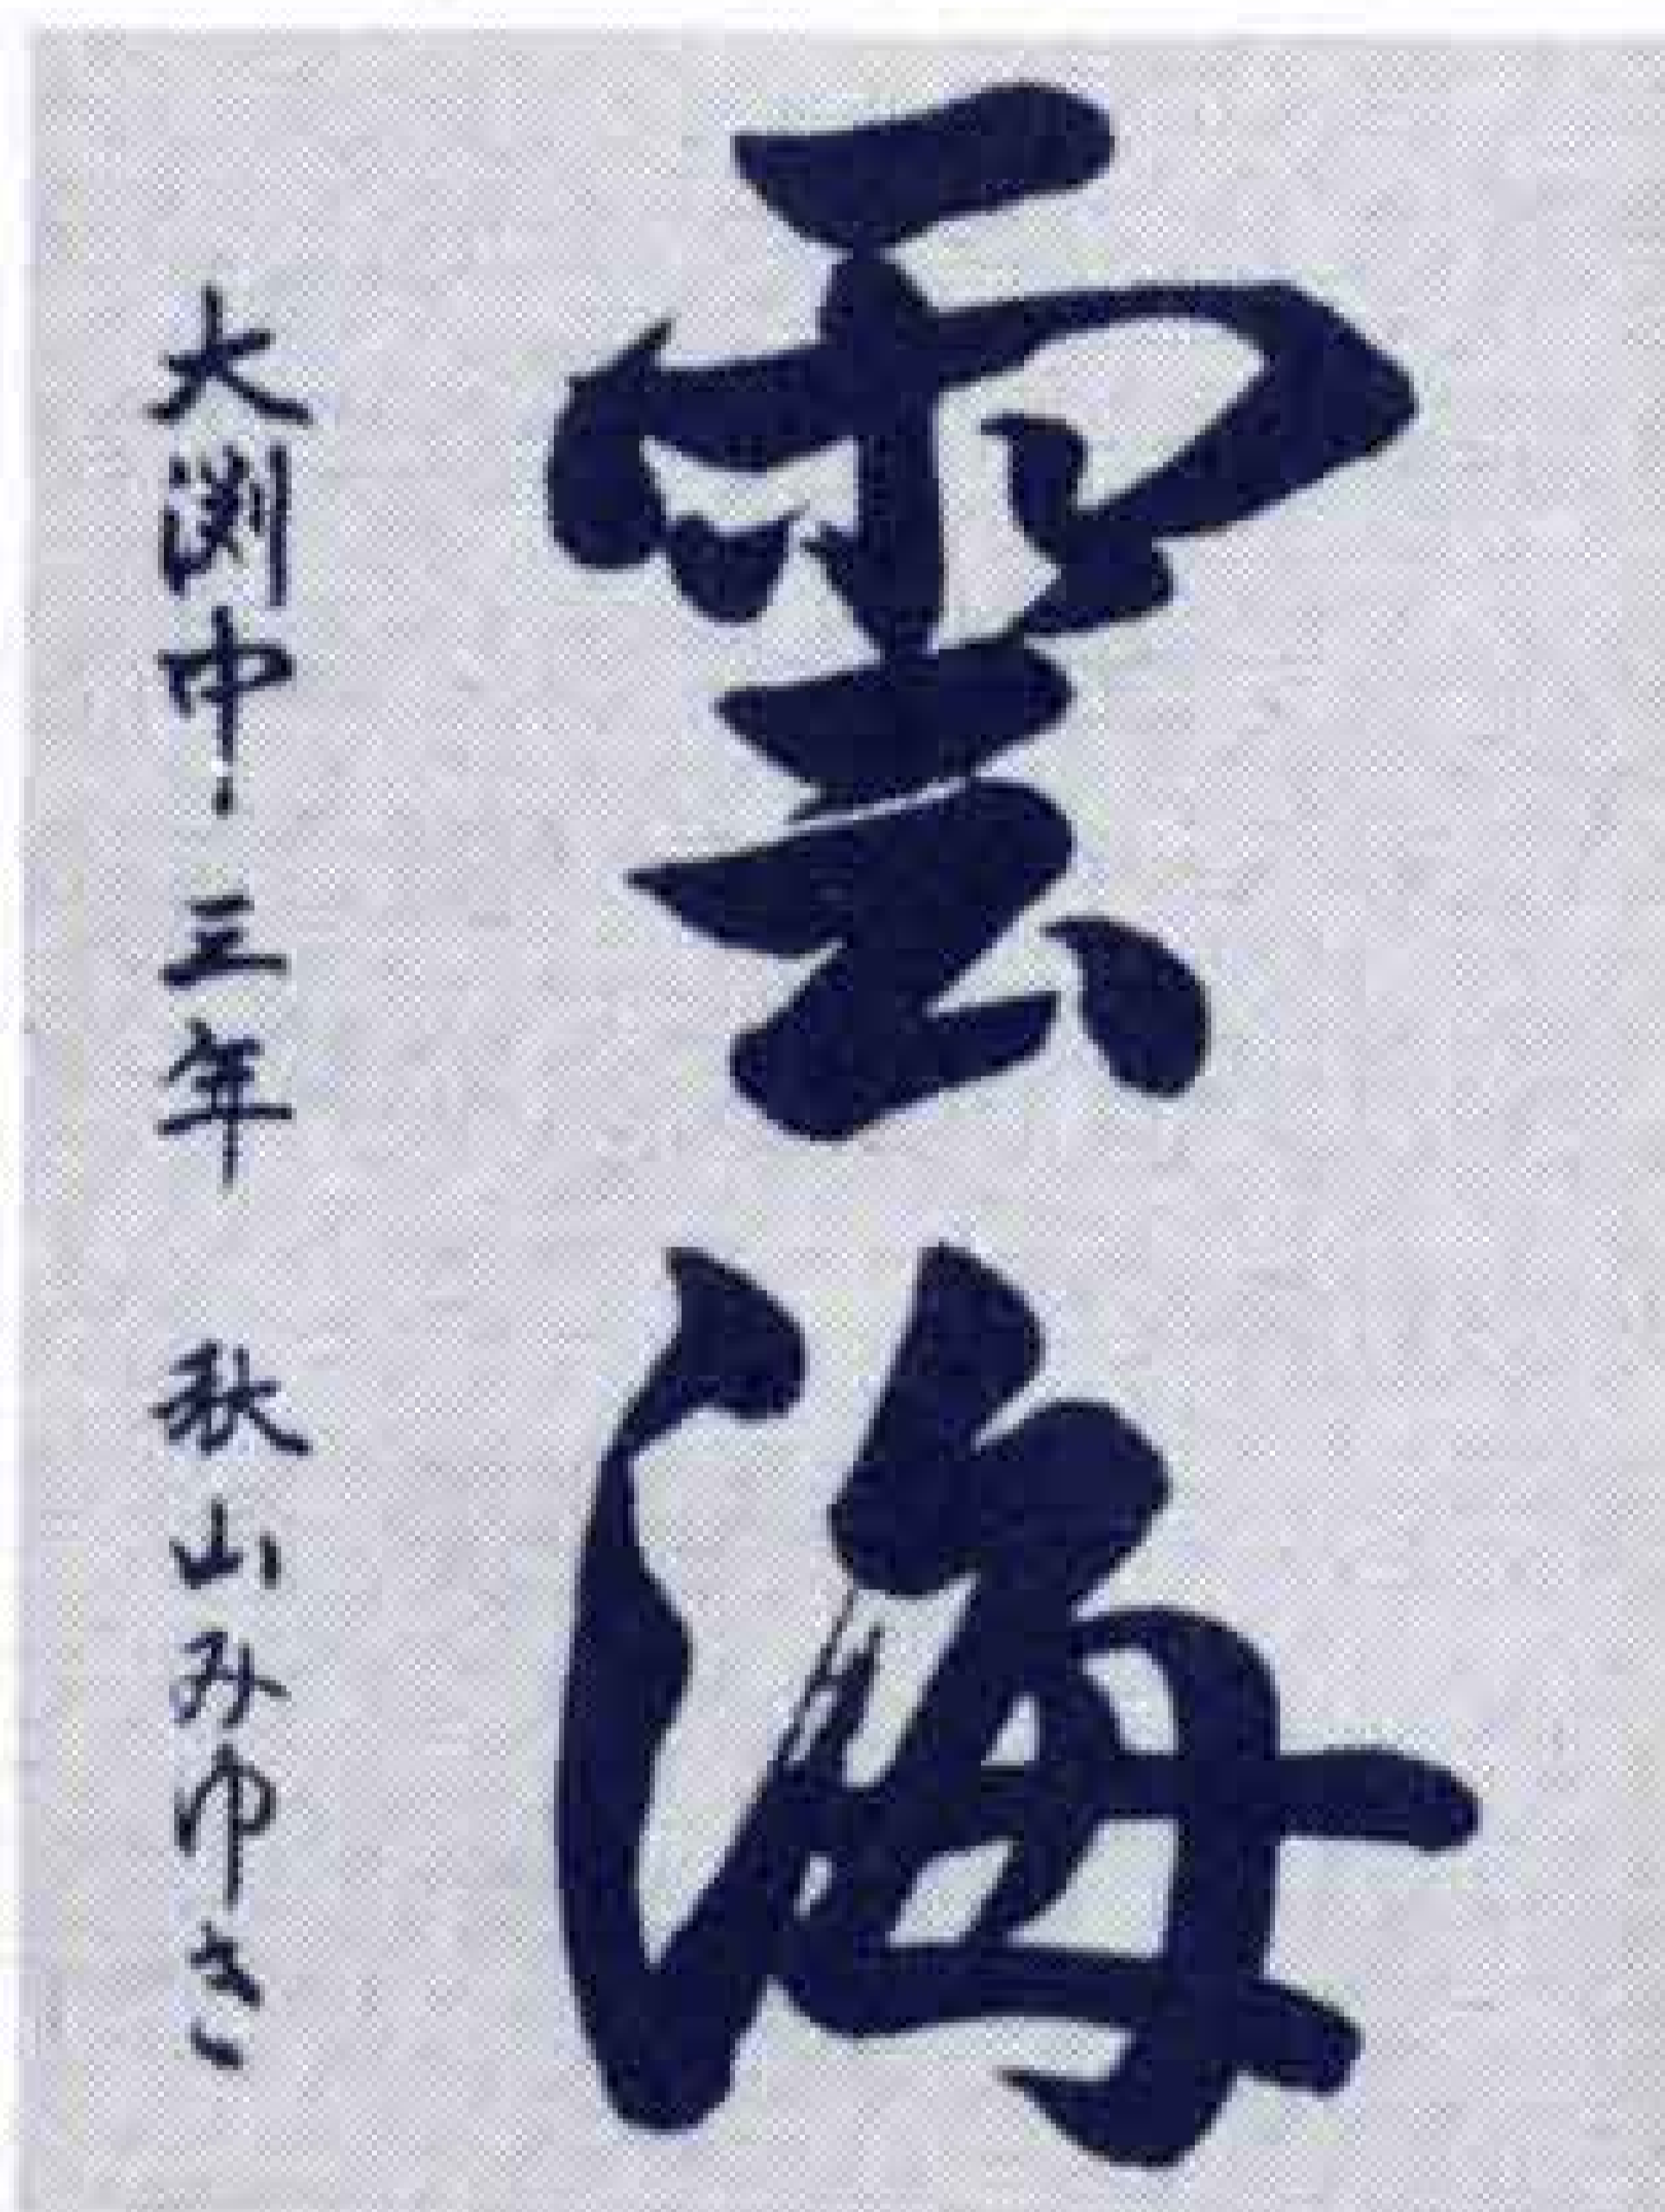 雲海
大渕中・三年 秋山みゆき